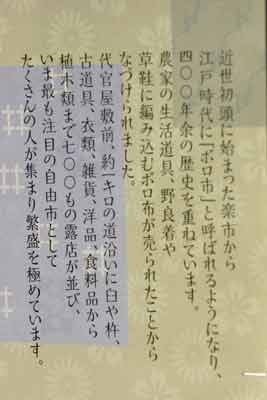 近世初頭に始まった楽市から
江戸時代に『ボロ市』と呼ばれるようになり、
四〇〇年余の歴史を重ねています。
農家の生活道具、野良着や
草鞋に編み込むボロ布が売られたことから
なづけられました。
代官屋敷前、約一キロの道沿いに臼や杵、
古道具、衣類、雑貨、洋品、食料品から
植木類まで七〇〇もの露店が並び、
いま最も注目の自由市として
たくさんの人が集まり繁盛を極めています。